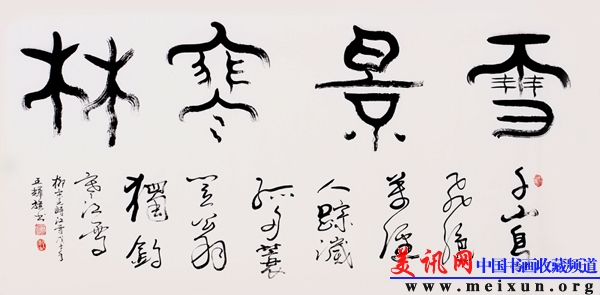 雪景寒林
千山鳥
飛絕
萬徑
人踪滅
孤舟蓑
笠翁
獨釣
寒江雪
柳宗元詩江雪戊子年
美讯网 中国书画收藏频道
www.meixun.org